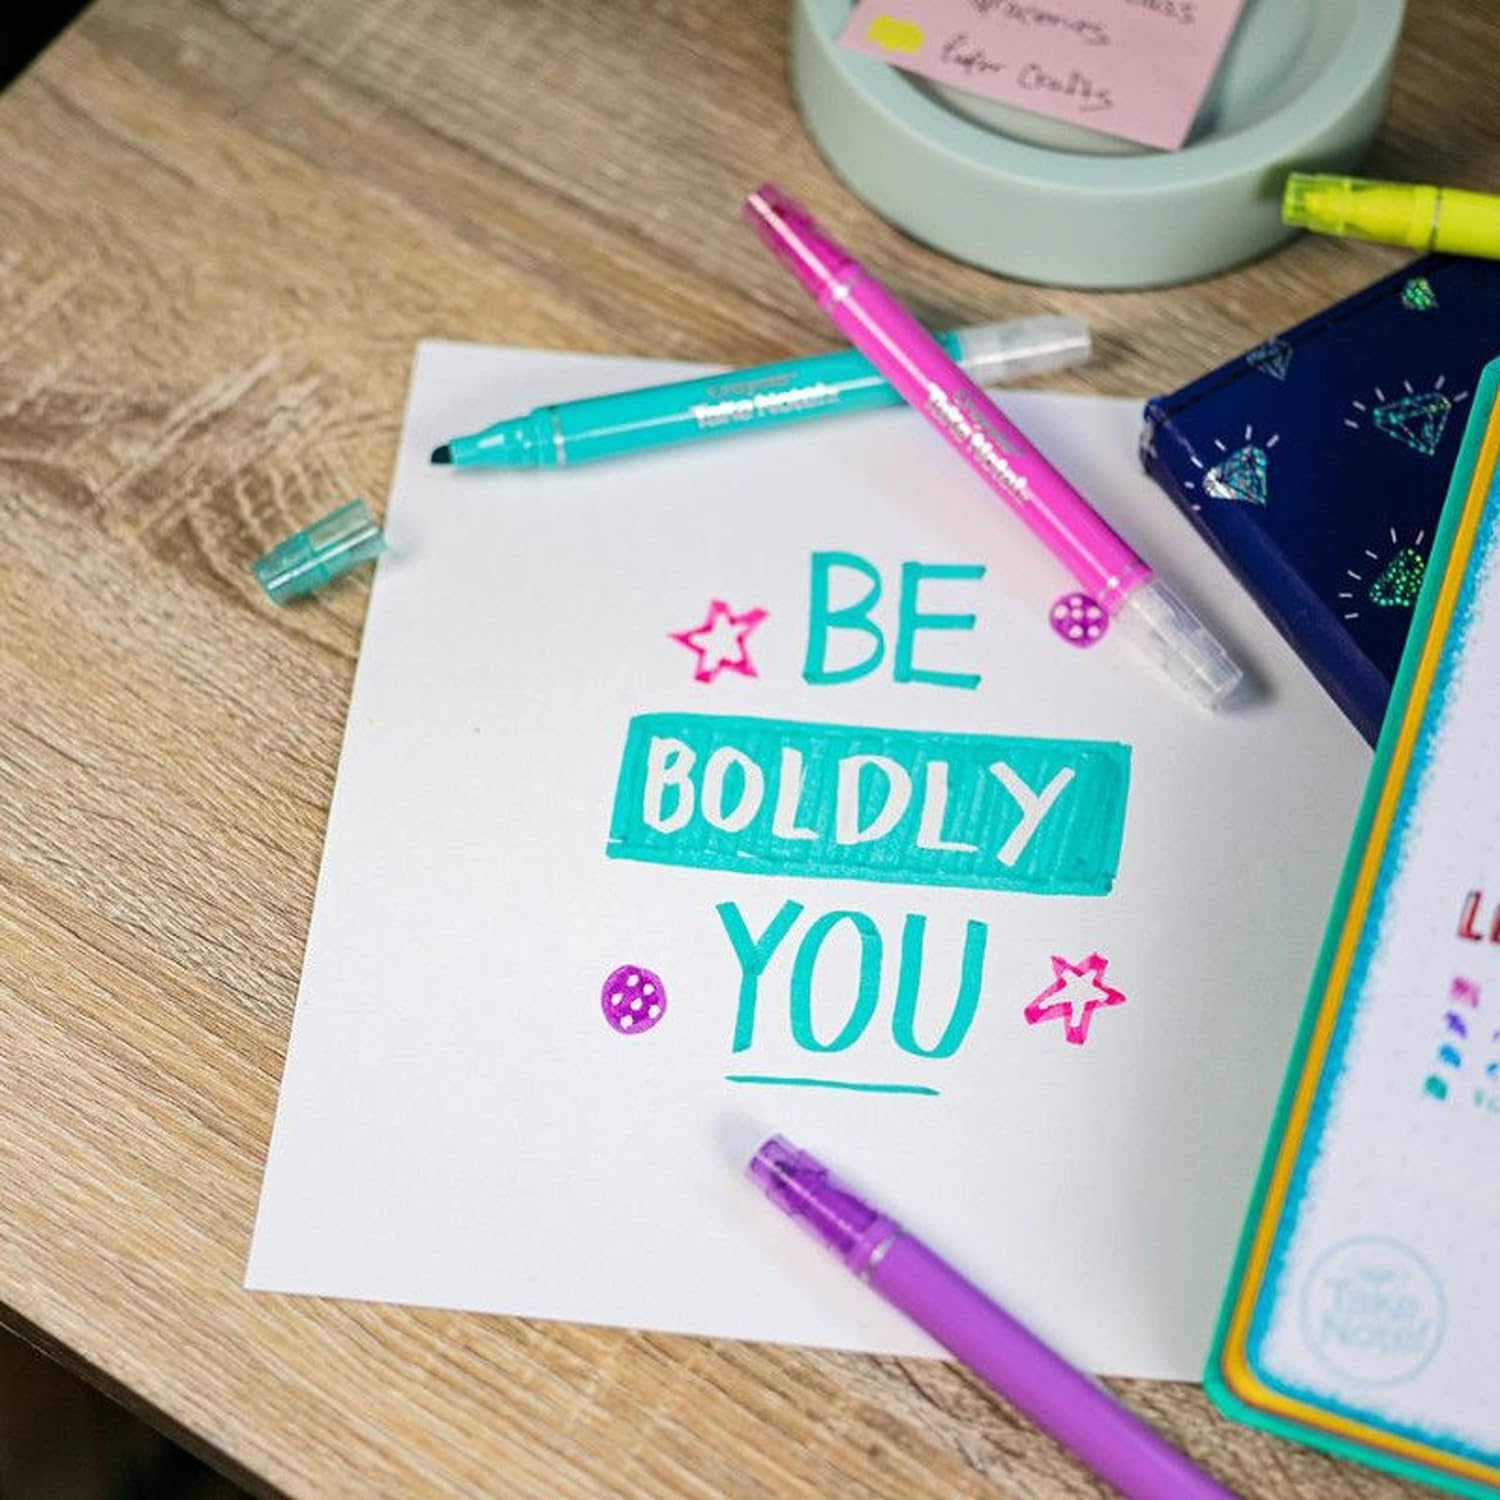 for Crafts
Crayola
Take Note!
Crayola
Take Note!
BE
BOLDLY
YOU
Take
Note!